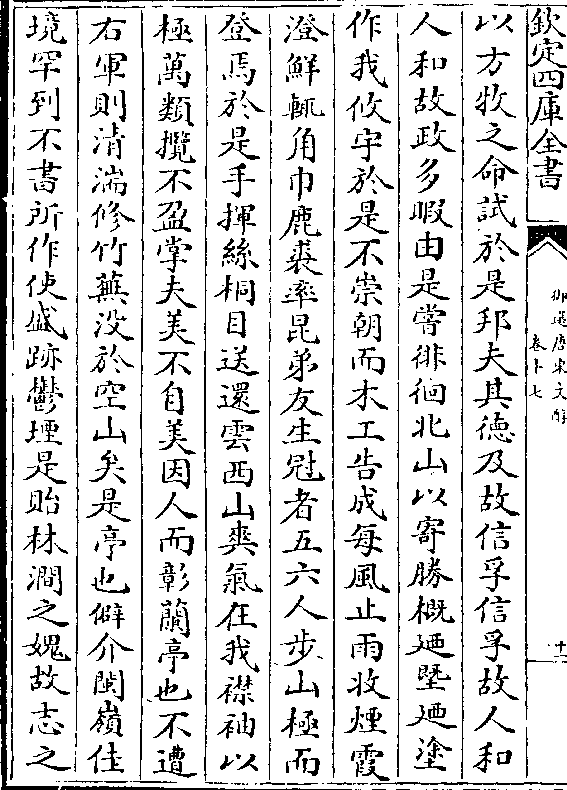 欽定四庫全書
御選唐宋文醇
卷十七
十二
以方牧之命試於是邦夫其德及故信孚信孚故人和
人和故政多暇由是嘗徘徊北山以寄勝概廼塈廼塗
作我攸宇於是不崇朝而木工告成每風止雨收煙霞
澄鮮輒角巾鹿裘率昆弟友生冠者五六人步山極而
登焉於是手揮絲桐目送還雲西山爽氣在我襟袖以
極萬類攬不盈掌夫美不自美因人而彰蘭亭也不遭
右軍則清湍修竹蕪沒於空山矣是亭也僻介閩嶺佳
境罕到不書所作使盛跡鬱堙是貽林澗之媿故志之